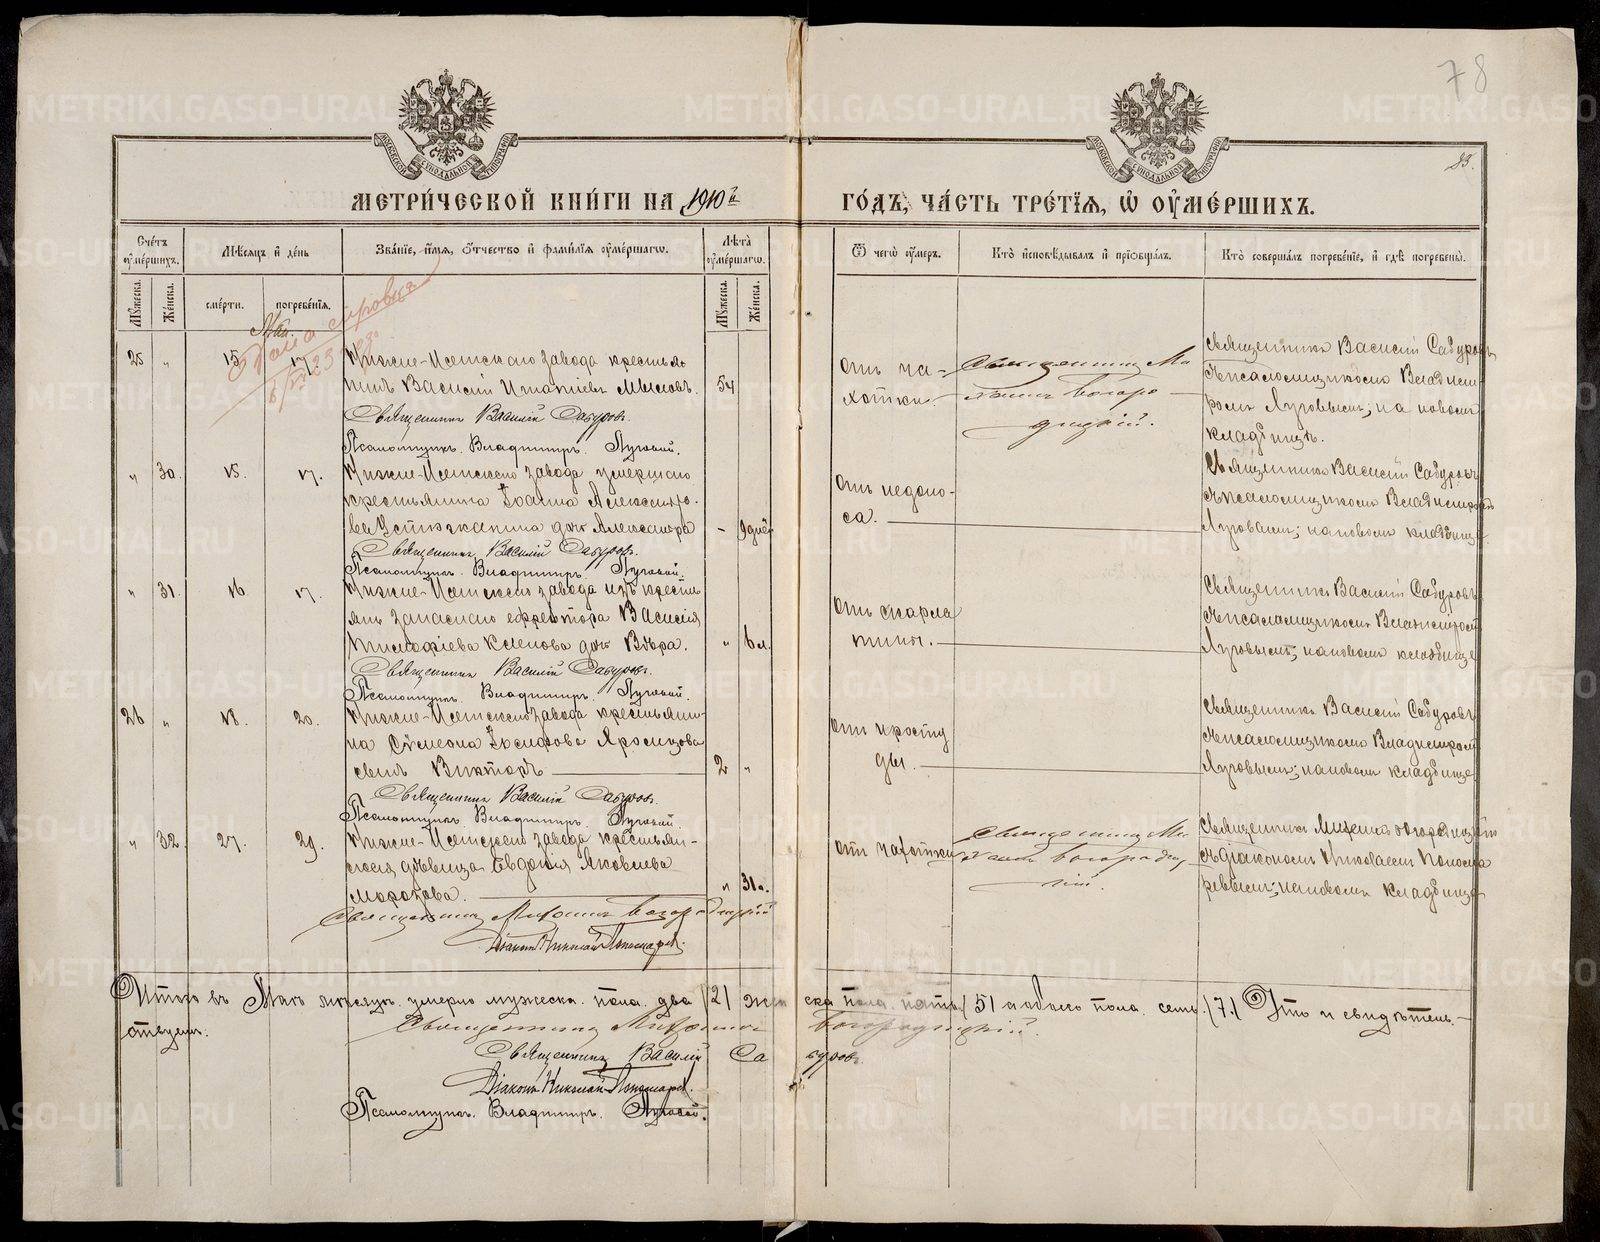 78
83.
МЕТРИ́ЧЕСКОЙ КНИ́ГИ НА 1910й ГО́ДЪ, ЧА́СТЬ ТРЕ́ТІѦ, Ѡ ОУ҆МЕ́РШИХЪ.
Сче́тъ оу҆ме́ршихъ.
Мѣ́сѧцъ и҆ де́нь
Зва́нїе, и҆́мѧ, ѻ҆́тчество и҆ фами́лїѧ оу҆ме́ршагѡ.
Лѣ́та оу҆ме́ршагѡ.
Ѿ чегѡ̀ оу҆́меръ.
Кто̀ и҆сповѣ́дывалъ и҆ прїѡбща́лъ.
Кто̀ соверша́лъ погребе́нїе, и҆ гдѣ̀ погребены̀.
Мꙋ́жеска.
Же́нска.
сме́рти.
погребе́нїѧ.
Мꙋ́жеска.
Же́нска.
Май.
25 „ 15 17
Нижне-Исетскаго завода крестья-
нинъ Василій Игнатіевъ Мысловъ. 54
Священникъ Василій Сабуровъ.
Псаломщикъ Владиміръ Луговой.
Отъ ча-
хотки
Священникъ Ми-
хаилъ Богоро-
дицкій.
Священникъ Василій Сабуровъ
съ псаломщикомъ Владимі-
ромъ Луговымъ; на новомъ
кладбищѣ.
„ 30. 15. 17.
Нижне-Исетскаго завода умершаго
крестьянина Іоанна Александро-
ва Устюжанина дочь Александра - 9 дней
Священникъ Василій Сабуровъ.
Псаломщикъ Владиміръ Луговой.
Отъ недоно-
са.
Священникъ Василій Сабуровъ
съ псаломщикомъ Владиміромъ
Луговымъ; на новомъ кладбищѣ.
„ 31. 16. 17.
Нижне-Исетскаго завода изъ кресть-
янъ запаснаго ефрейтора Василія
Тимофіева дочь Вѣра. „ 6 м.
Священникъ Василій Сабуровъ.
Псаломщикъ Владиміръ Луговой.
Отъ скарла-
тины.
Священникъ Василій Сабуровъ
съ псаломщикомъ Владиміромъ
Луговымъ; на новомъ кладбищѣ
26 „ 18. 20.
Нижне-Исетскаго завода крестьяни-
на Сѵмеона Іосифова
сынъ Викторъ 2 „
Священникъ Василій Сабуровъ.
Псаломщикъ Владиміръ Луговой.
Отъ просту-
ды.
Священникъ Василій Сабуровъ
съ псаломщикомъ Владиміромъ
Луговымъ; на новомъ кладбищѣ
„ 32. 27. 29.
Нижне-Исетскаго завода крестьян-
ская дѣвица Евдокія Яковлева
Морозова. „ 31 г.
Священникъ Михаилъ Богородицкій
Діаконъ Николай Пономаревъ.
Отъ чахотки
Священникъ Ми-
хаилъ Богородиц-
кій.
Священникъ Михаилъ Богородицкій
съ діакономъ Николаемъ Понома-
ревымъ; на новомъ кладбищѣ
Итого въ Маѣ мѣсяцѣ умерло мужеска пола два (2) женска пола пять (5) и обоего пола семь (7.) Что и свидѣтель-
ствуемъ.
Священникъ Михаилъ Богородицкій.
Священникъ Василій Сабуровъ.
Діаконъ Николай Пономаревъ.
Псаломщикъ Владиміръ Луговой.
METRIKI.GASO-URAL.RU